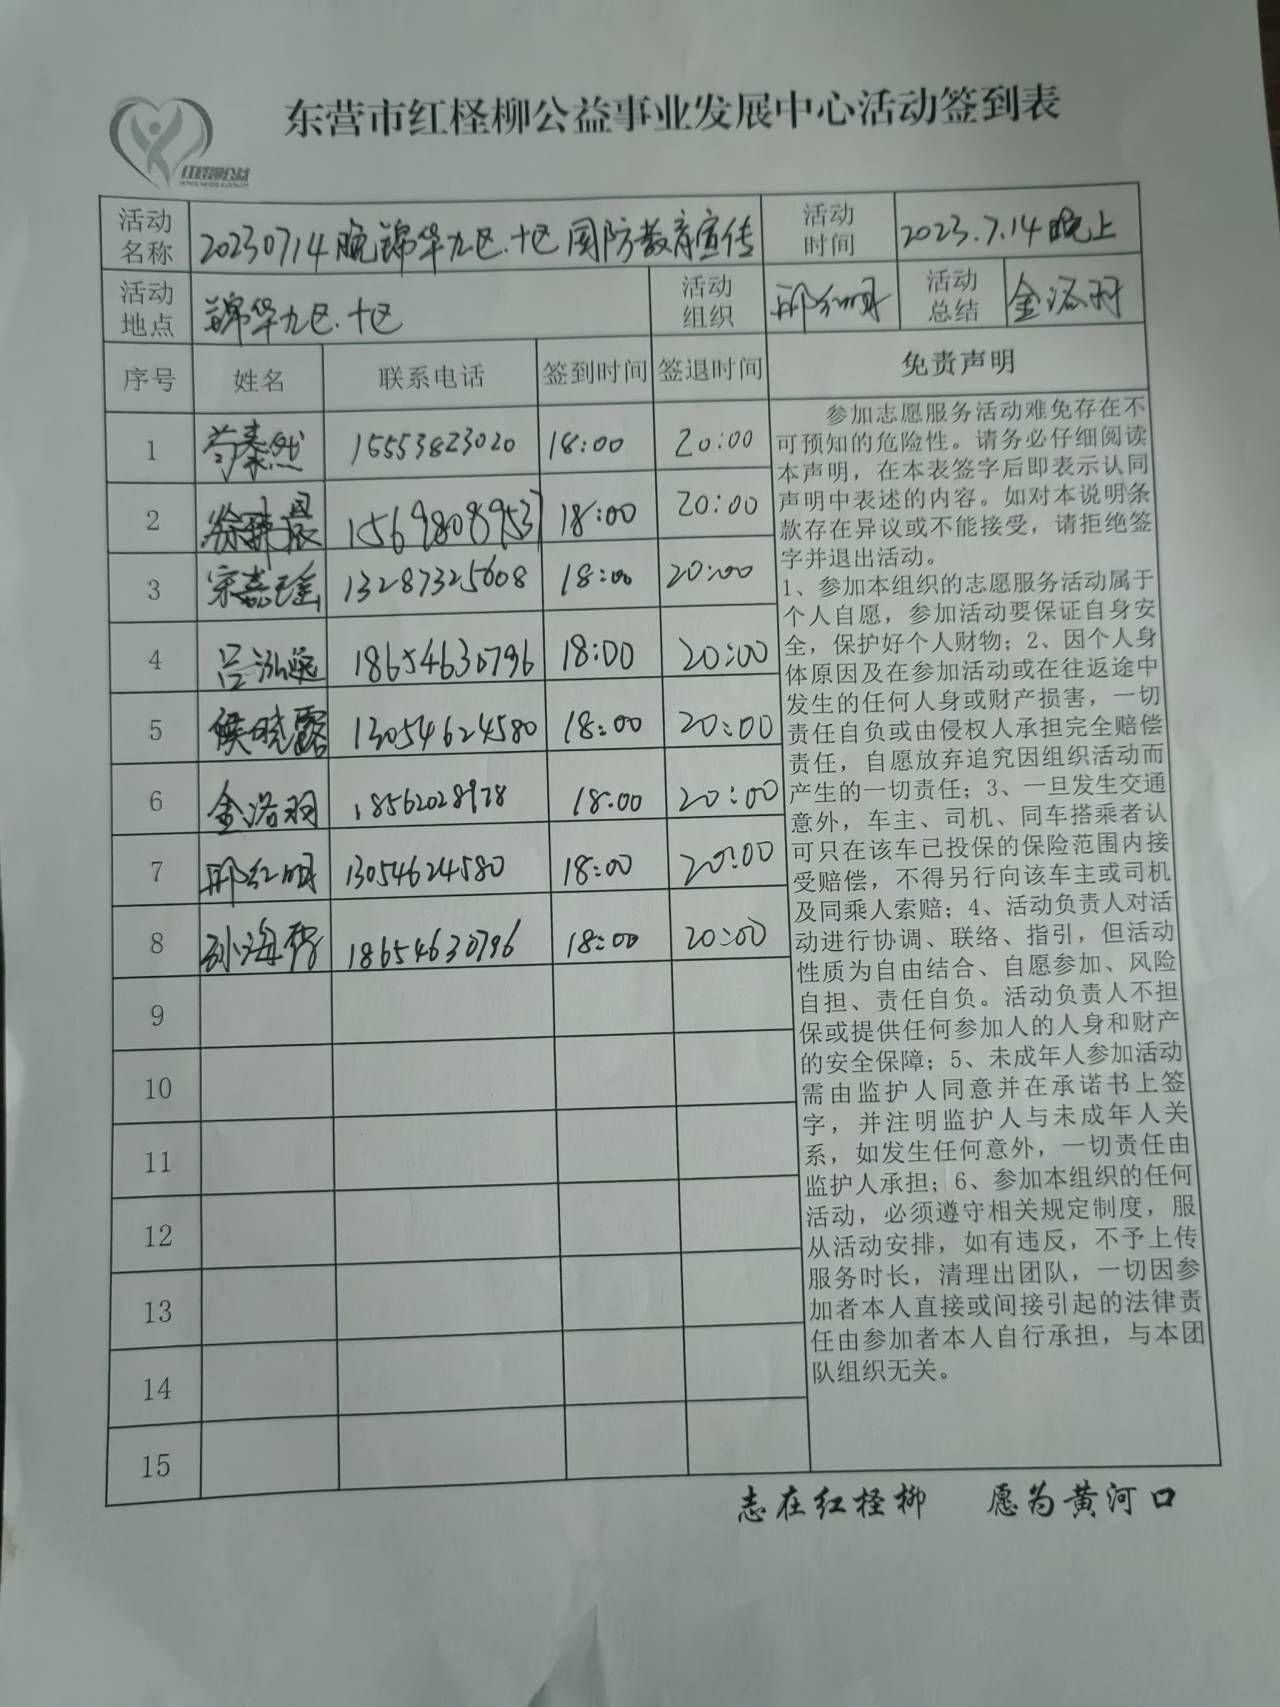 东营市红柽柳公益事业发展中心活动签到表
红柽柳公益
活动名称 20230714晚锦华九区.十区国防教育宣传 活动时间 2023.7.14晚上
活动地点 锦华九区.十区 活动组织 邢红明 活动总结 金洛羽
序号 姓名 联系电话 签到时间 签退时间 免责声明
1 15553823020 18:00 20:00
2 15698089537 18:00 20:00
3 宋嘉瑶 13287325608 18:00 20:00
4 吕泓逸 18654630796 18:00 20:00
5 侯晓露 13054624580 18:00 20:00
6 金洛羽 18562028978 18:00 20:00
7 邢红明 13054624580 18:00 20:00
8 孙海 18654630796 18:00 20:00
9
10
11
12
13
14
15
参加志愿服务活动难免存在不
可预知的危险性。请务必仔细阅读
本声明，在本表签字后即表示认同
声明中表述的内容。如对本说明条
款存在异议或不能接受，请拒绝签
字并退出活动。
1、参加本组织的志愿服务活动属于
个人自愿，参加活动要保证自身安
全，保护好个人财物；2、因个人身
体原因及在参加活动或在往返途中
发生的任何人身或财产损害，一切
责任自负或由侵权人承担完全赔偿
责任，自愿放弃追究因组织活动而
产生的一切责任；3、一旦发生交通
意外，车主、司机、同车搭乘者认
可只在该车已投保的保险范围内接
受赔偿，不得另行向该车主或司机
及同乘人索赔；4、活动负责人对活
动进行协调、联络、指引，但活动
性质为自由结合、自愿参加、风险
自担、责任自负。活动负责人不担
保或提供任何参加人的人身和财产
的安全保障；5、未成年人参加活动
需由监护人同意并在承诺书上签
字，并注明监护人与未成年人关
系，如发生任何意外，一切责任由
监护人承担；6、参加本组织的任何
活动，必须遵守相关规定制度，服
从活动安排，如有违反，不予上传
服务时长，清理出团队，一切因参
加者本人直接或间接引起的法律责
任由参加者本人自行承担，与本团
队组织无关。
志在红柽柳 愿为黄河口